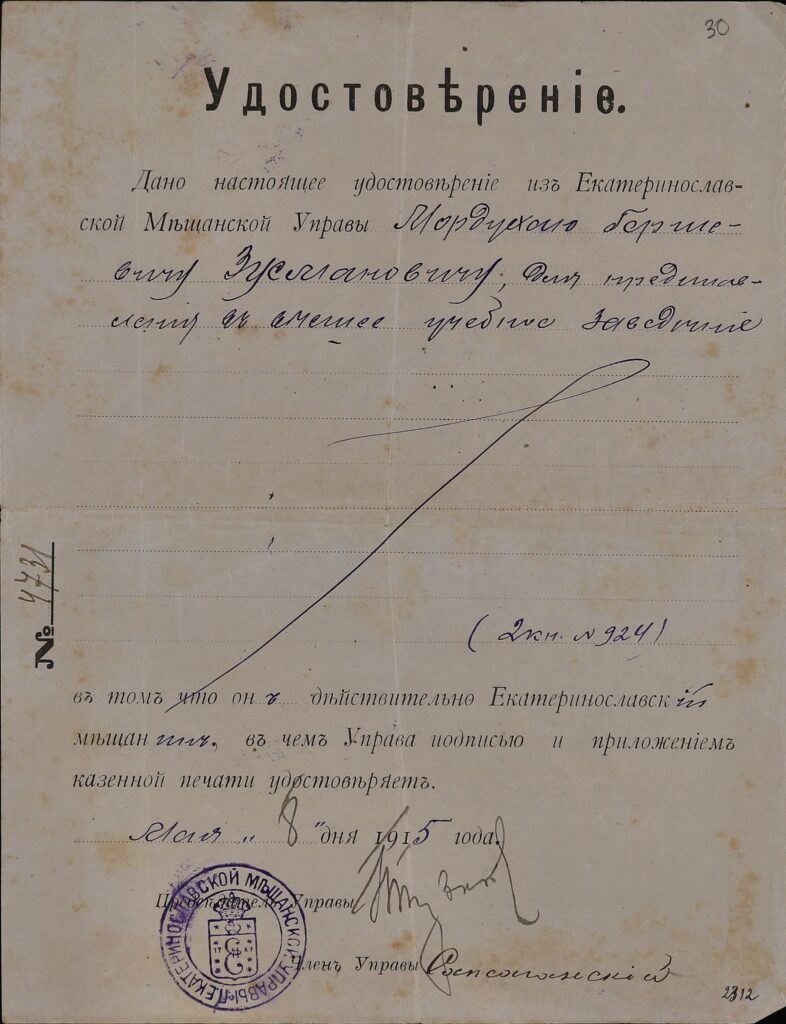 30
Удостовѣреніе.
Дано настоящее удостовѣреніе изъ Екатеринослав-
ской Мѣщанской Управы Мордухаю Берше-
вичу Зусмановичу, для представ-
ленія въ высшее учебное заведеніе
№ 4731
(2 кн. № 924)
въ томъ что онъ дѣйствительно Екатеринославскій
мѣщанинъ, въ чемъ Управа подписью и приложеніемъ
казенной печати удостовѣряетъ.
Мая „ 8 " дня 1915 года.
Предсѣдатель Управы
Членъ Управы
ЕКАТЕРИНОСЛАВСКОЙ МѢЩАНСКОЙ УПРАВЫ
2312